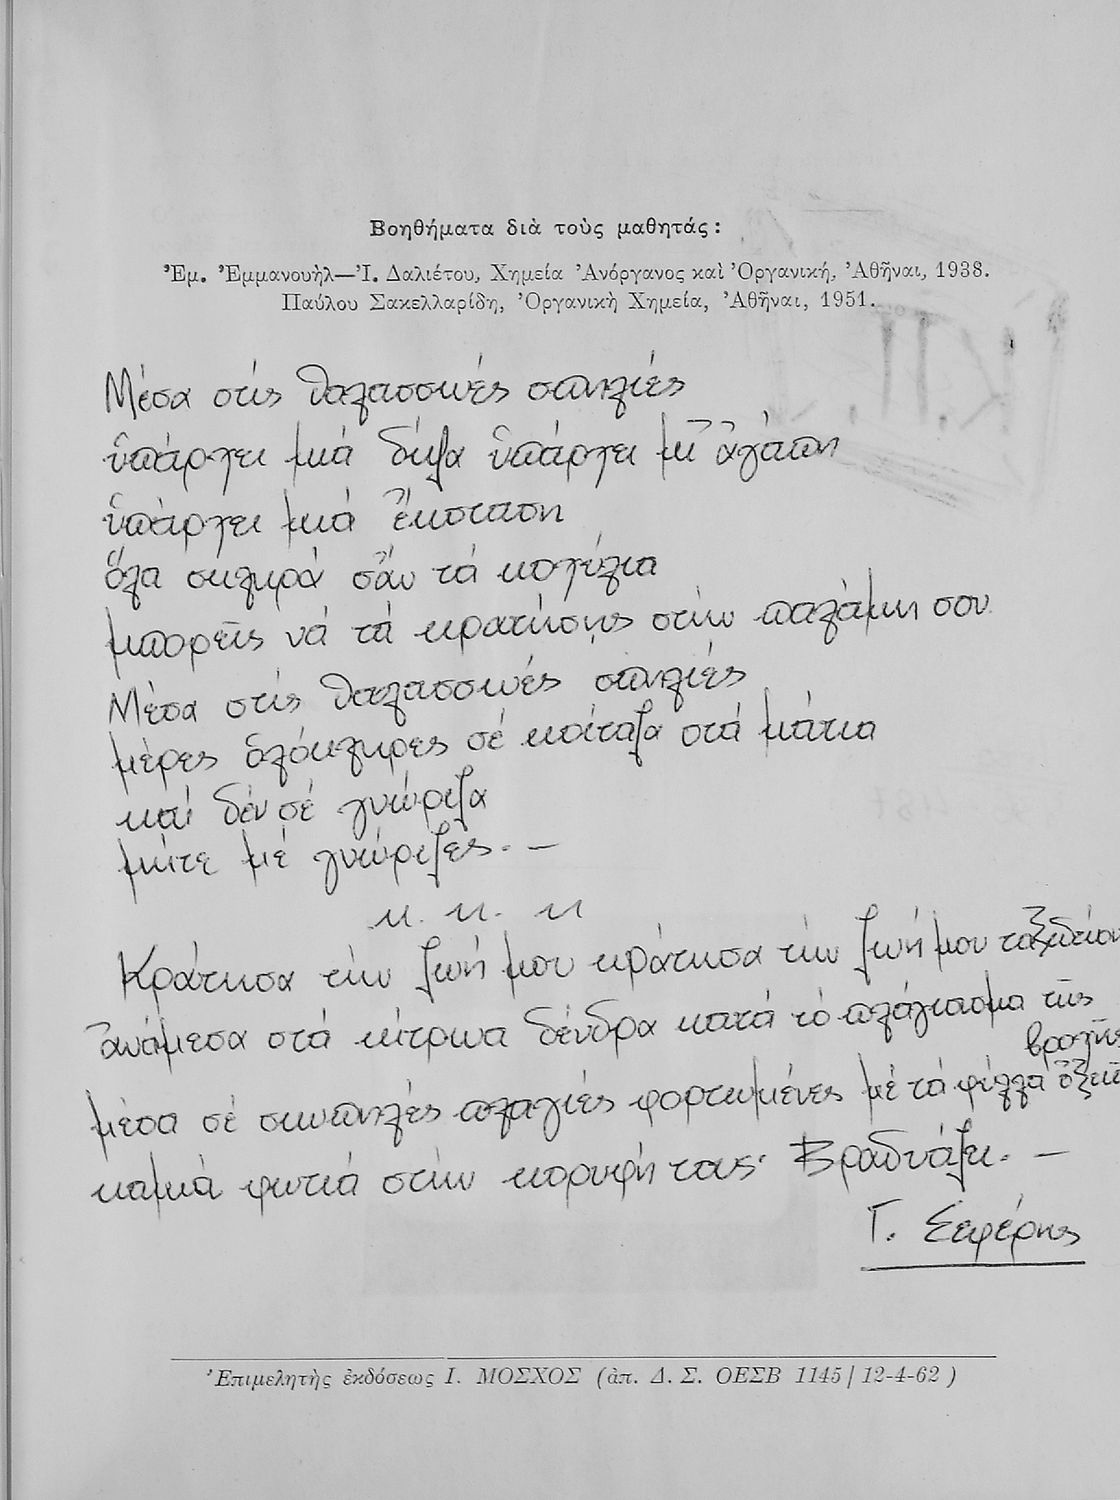 Βοηθήματα διὰ τοὺς μαθητάς:
Ἐμ. Ἐμμανουὴλ—Ἰ. Δαλιέτου, Χημεία Ἀνόργανος καὶ Ὀργανική, Ἀθῆναι, 1938.
Παύλου Σακελλαρίδη, Ὀργανικὴ Χημεία, Ἀθῆναι, 1951.
Κ.Π.
Μέσα στίς θαλασσινές σπηλιές
ὑπάρχει μιά δίψα ὑπάρχει μι ἀγάπη
ὑπάρχει μιά ἔκσταση
ὅλα σκληρά σάν τά κοχύλια
μπορεῖς νά τά κρατήσῃς στήν παλάμη σου
Μέσα στίς θαλασσινές σπηλιές
μέρες ὁλόκληρες σέ κοίταζα στά μάτια
καί δέν σέ γνώριζα
μήτε μέ γνώριζες. —
κ. κ. κ
Κράτησα τήν ζωή μου κράτησα τήν ζωή μου ταξιδεύον
ἀνάμεσα στά κίτρινα δένδρα κατά τό πλάγιασμα τῆς
βροχῆς
μέσα σέ σιωπηλές πλαγιές φορτωμένες μέ τά φύλλα ὀξειᾶ
καμιά φωτιά στήν κορυφή τους· Βραδυάζει. —
Γ. Σεφέρης
Ἐπιμελητὴς ἐκδόσεως Ι. ΜΟΣΧΟΣ (ἀπ. Δ. Σ. ΟΕΣΒ 1145 / 12-4-62 )